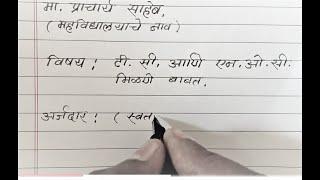 मा. प्राचार्य साहेब,
( महविद्यालयाचे नाव )
विषय : टी. सी. आणि एन. ओ. सी.
मिळणे बाबत.
अर्जदार : ( स्वत